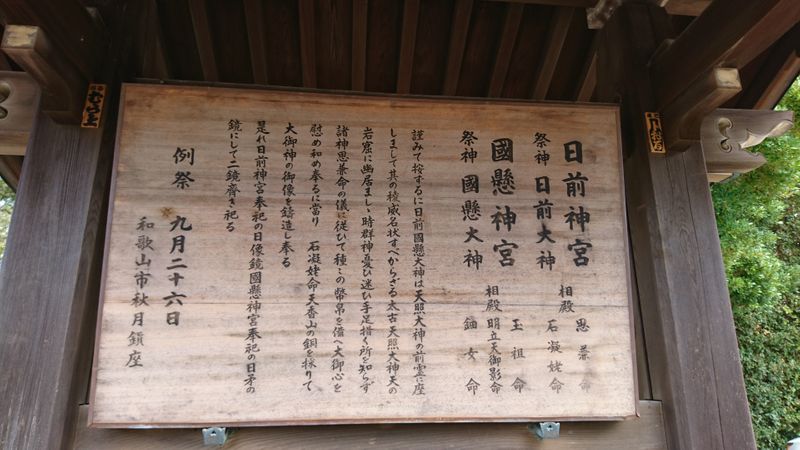 日前神宮
祭神 日前大神
相殿 思兼命
石凝姥命
國懸神宮
祭神 國懸大神
相殿 玉祖命
明立天御影命
鈿女命
謹みて按するに日前國懸大神は天照大神の前霊に座
しまして其の稜威名状すべからざる太古天照大神天の
岩窟に幽居ましし時群神憂ひ迷ひ手足措く所を知らず
諸神思兼命の儀に従ひて種々の幣帛を備へ大御心を
慰め和め奉るに當り 石凝姥命天香山の銅を採りて
大御神の御像を鋳造し奉る
是れ日前神宮奉祀の日像鏡國懸神宮奉祀の日矛の
鏡にして二鏡齊き祀る
例祭 九月二十六日
和歌山市秋月鎮座